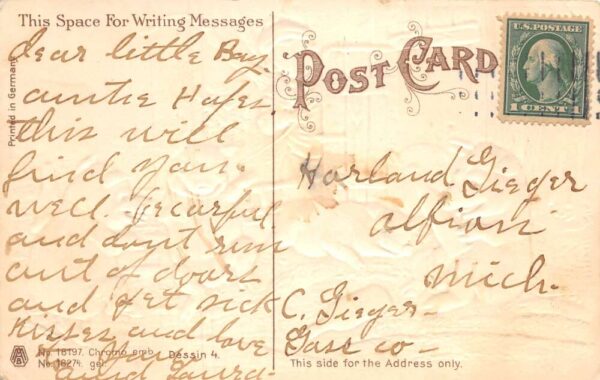 This Space For Writing Messages
dear little Boy.
auntie Hopes
this will
find you
well. be carful
and dont run
out of doars
and get sick
Kisses and love
Printed in Germany
No. 18197. Chromo emb. Dessin 4.
No. 16274. gel.
POST CARD
U.S. POSTAGE
1 CENT 1
Harland Gieger
albion
mich.
C. Gieger
Gass co
This side for the Address only.